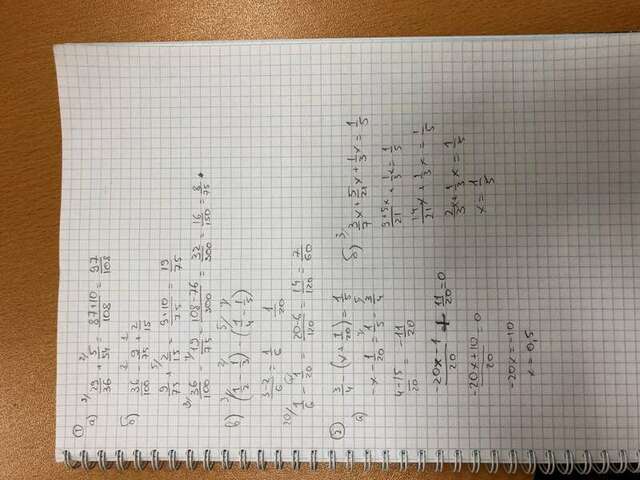 ①
а) ³⁄ 29/36 + ²⁄ 5/54 = (87+10)/108 = 97/108
б) 36/100 - 9/75 + 2/15
9/75 + ⁵⁄ 2/15 = (9+10)/75 = 19/75
³⁄ 36/100 - ⁴⁄ 19/75 = (108-76)/300 = 32/300 = 16/150 = 8/75.
в) (³⁄ 1/2 - ²⁄ 1/3) - (⁵⁄ 1/4 - ⁴⁄ 1/5)
(3-2)/6 = 1/6 1/20
²⁰⁄ 1/6 - ⁶⁄ 1/20 = (20-6)/120 = 14/120 = 7/60
②
а) 3/4 - (x + 1/20) = 1/5
-x - 1/20 = ⁴⁄ 1/5 - ⁵ 3/4
(4-15)/20 = -11/20
(-20x-1)/20 + 11/20 = 0
(-20x+10)/20 = 0
-20x = -10
x = 0,5
б) ³⁄ 3/7 x + 5/21 x + 1/3 x = 1/5
(9+5x)/21 + 1/3 x = 1/5
14/21 x + 1/3 x = 1/5
2/3 x + 1/3 x = 1/5
x = 1/5